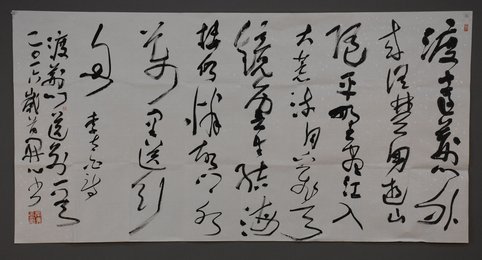 渡遠荆门外
来從楚国遊山
随平野尽江入
大荒流月下飛天
鏡云生结海
楼仍怜故乡水
万里送行
舟 李太白詩
渡荆门送别一首
二〇一六歲首